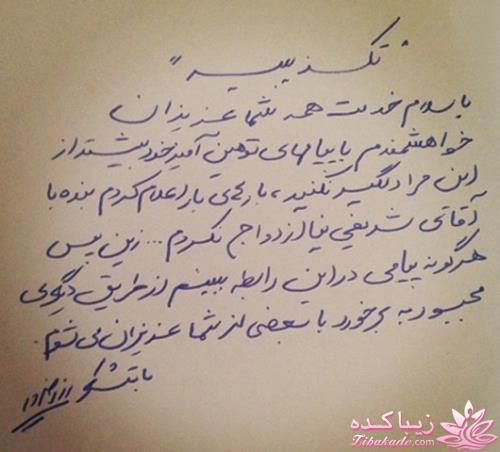 " تکذیبیه "
با سلام خدمت همه شما عزیزان
خواهشمندم با پیامهای توهین آمیز خود بیشتر از
این مرا دلگیر نکنید، بارهای بار اعلام کردم بنده با
آقای شریفی نیا ازدواج نکردم... زین پس
هرگونه پیامی در این رابطه ببینم از طریق دیگری
مجبور به برخورد با بعضی از شما عزیزان می شوم.
با تشکر
زیباکده
Zibakade.com